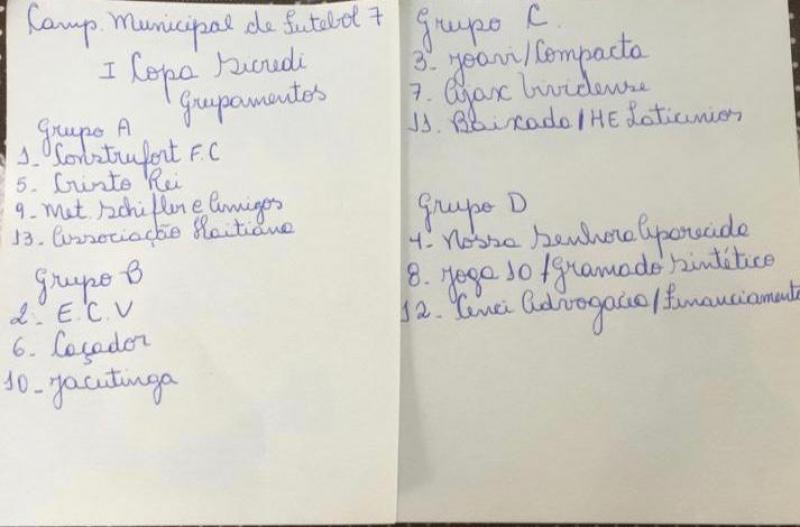 Camp. Municipal de Futebol 7
I Copa Sicredi
Grupamentos
Grupo A
1- Construfort F.C
5- Cristo Rei
9- Met. Schifler e Amigos
13- Associação Haitiana
Grupo B
2- E.C.V
6- Caçador
10- Jacutinga
Grupo C.
3- Joavi/Compacta
7- Ajax Vividense
11- Baixada/HE Laticinios
Grupo D
4- Nossa Senhora Aparecida
8- Joga 10/Gramado Sintético
12- Cenci Advogacia/Financiamento